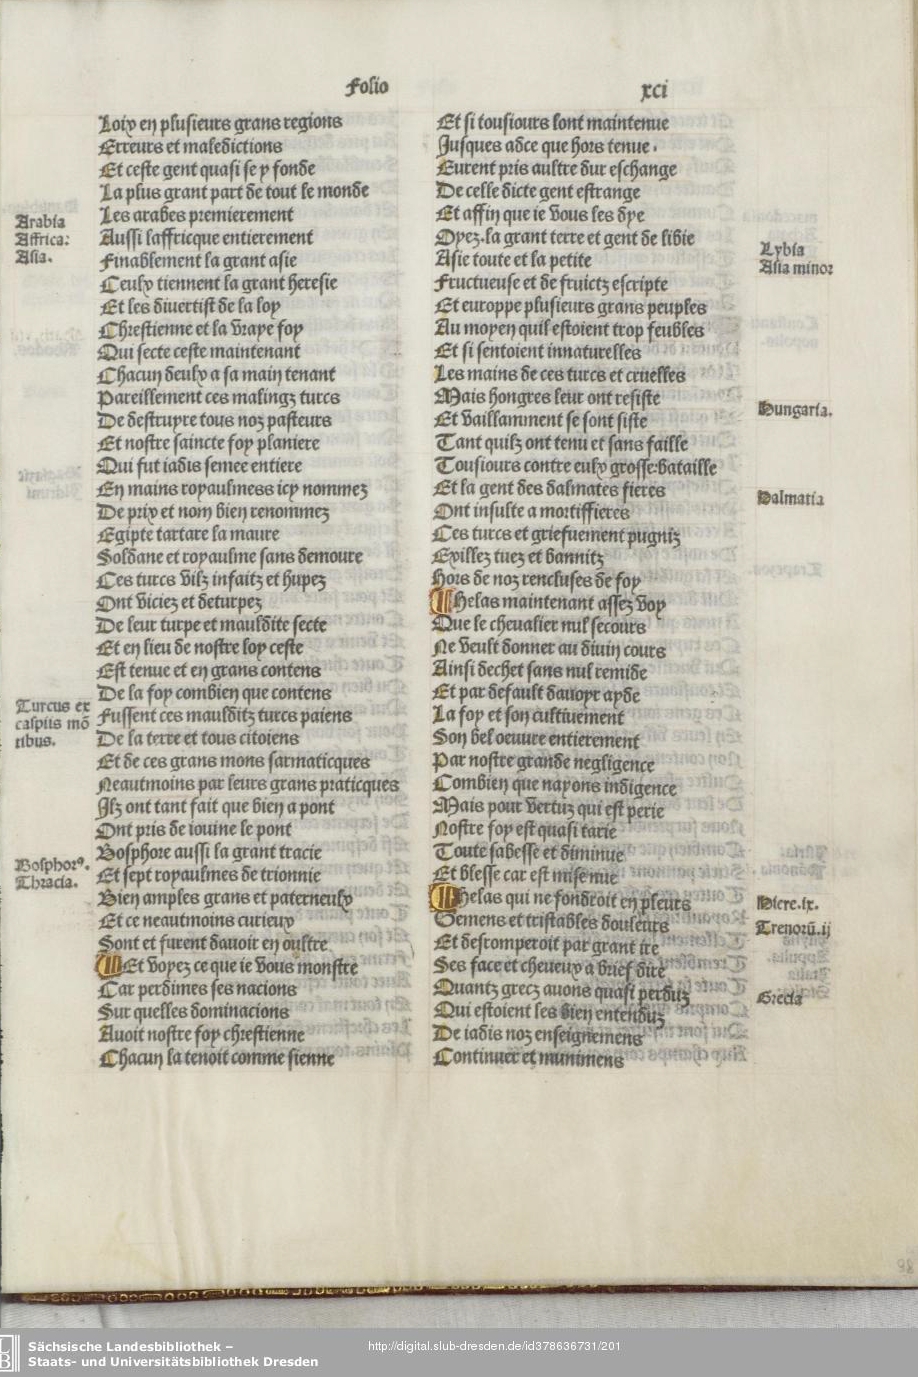 Folio xci
Loix en plusieurs grans regions
Erreurs et maledictions
Et ceste gent quasi se y fonde
La plus grant part de tout le monde
Les arabes premierement
Aussi laffricque entierement
Finablement la grant asie
Ceulx tiennent la grant heresie
Et les divertist de la loy
Chrestienne et la vraye foy
Qui secte ceste maintenant
Chacun deulx a sa main tenant
Pareillement ces malingz turcs
De destruyre tous noz pasteurs
Et nostre saincte foy planiere
Qui fut iadis semee entiere
En mains royaulmess icy nommez
De prix et nom bien renommez
Egipte tartare la maure
Soldane et royaulme sans demoure
Ces turcs vilz infaitz et hupez
Ont viciez et deturpez
De leur turpe et mauldite secte
Et en lieu de nostre loy ceste
Est tenue et en grans contens
De la foy combien que contens
Fussent ces maulditz turcs paiens
De la terre et tous citoiens
Et de ces grans mons sarmaticques
Neautmoins par leurs grans praticques
Ilz ont tant fait que bien a pont
Ont pris de iouine le pont
Bosphore aussi la grant tracie
Et sept royaulmes de trionnie
Bien amples grans et paterneulx
Et ce neautmoins curieux
Sont et furent davoir en oultre
Et voyez ce que ie vous monstre
Car perdimes ses nacions
Sur quelles dominacions
Avoit nostre foy chrestienne
Chacun la tenoit comme sienne
Arabia
Affrica:
Asia.
Turcus ex
caspiis mō
tibus.
Bosphorꝰ.
Thracia.
Et si tousiours sont maintenue
Jusques adce que hors tenue.
Eurent pris aultre dur eschange
De celle dicte gent estrange
Et affin que ie vous les dye
Oyez.la grant terre et gent de libie
Asie toute et la petite
Fructueuse et de fruictz escripte
Et europpe plusieurs grans peuples
Au moyen quil estoient trop feubles
Et si sentoient innaturelles
Les mains de ces turcs et cruelles
Mais hongres leur ont resiste
Et vaillamment se sont siste
Tant quilz ont tenu et sans faille
Tousiours contre eulx grosse:bataille
Et la gent des dalmates fieres
Ont insulte a mortiffieres
Ces turcs et griefuement pugniz
Exillez tuez et bannitz
Hors de noz rencluses de foy
Helas maintenant assez voy
Que le chevalier nul secours
Ne veult donner au divin cours
Ainsi dechet sans nul remide
Et par default davoyr ayde
La foy et son cultivement
Son bel oeuvre entierement
Par nostre grande negligence
Combien que nayons indigence
Mais pour vertuz qui est perie
Nostre foy est quasi tarie
Toute sabesse et diminue
Et blesse car est mise nue
Helas qui ne fondroit en pleurs
Gemens et tristables douleurs
Et desromperoit par grant ire
Ses face et cheveux a brief dire
Quantz grecz avons quasi perduz
Qui estoient les bien entenduz
De iadis noz enseignemens
Continuer et munimens
Lybia
Asia minor
Hungaria.
Dalmatia
Hiere.ix.
Trenorū.ij
Grecia
98
Sächsische Landesbibliothek –
Staats- und Universitätsbibliothek Dresden
http://digital.slub-dresden.de/id378636731/201